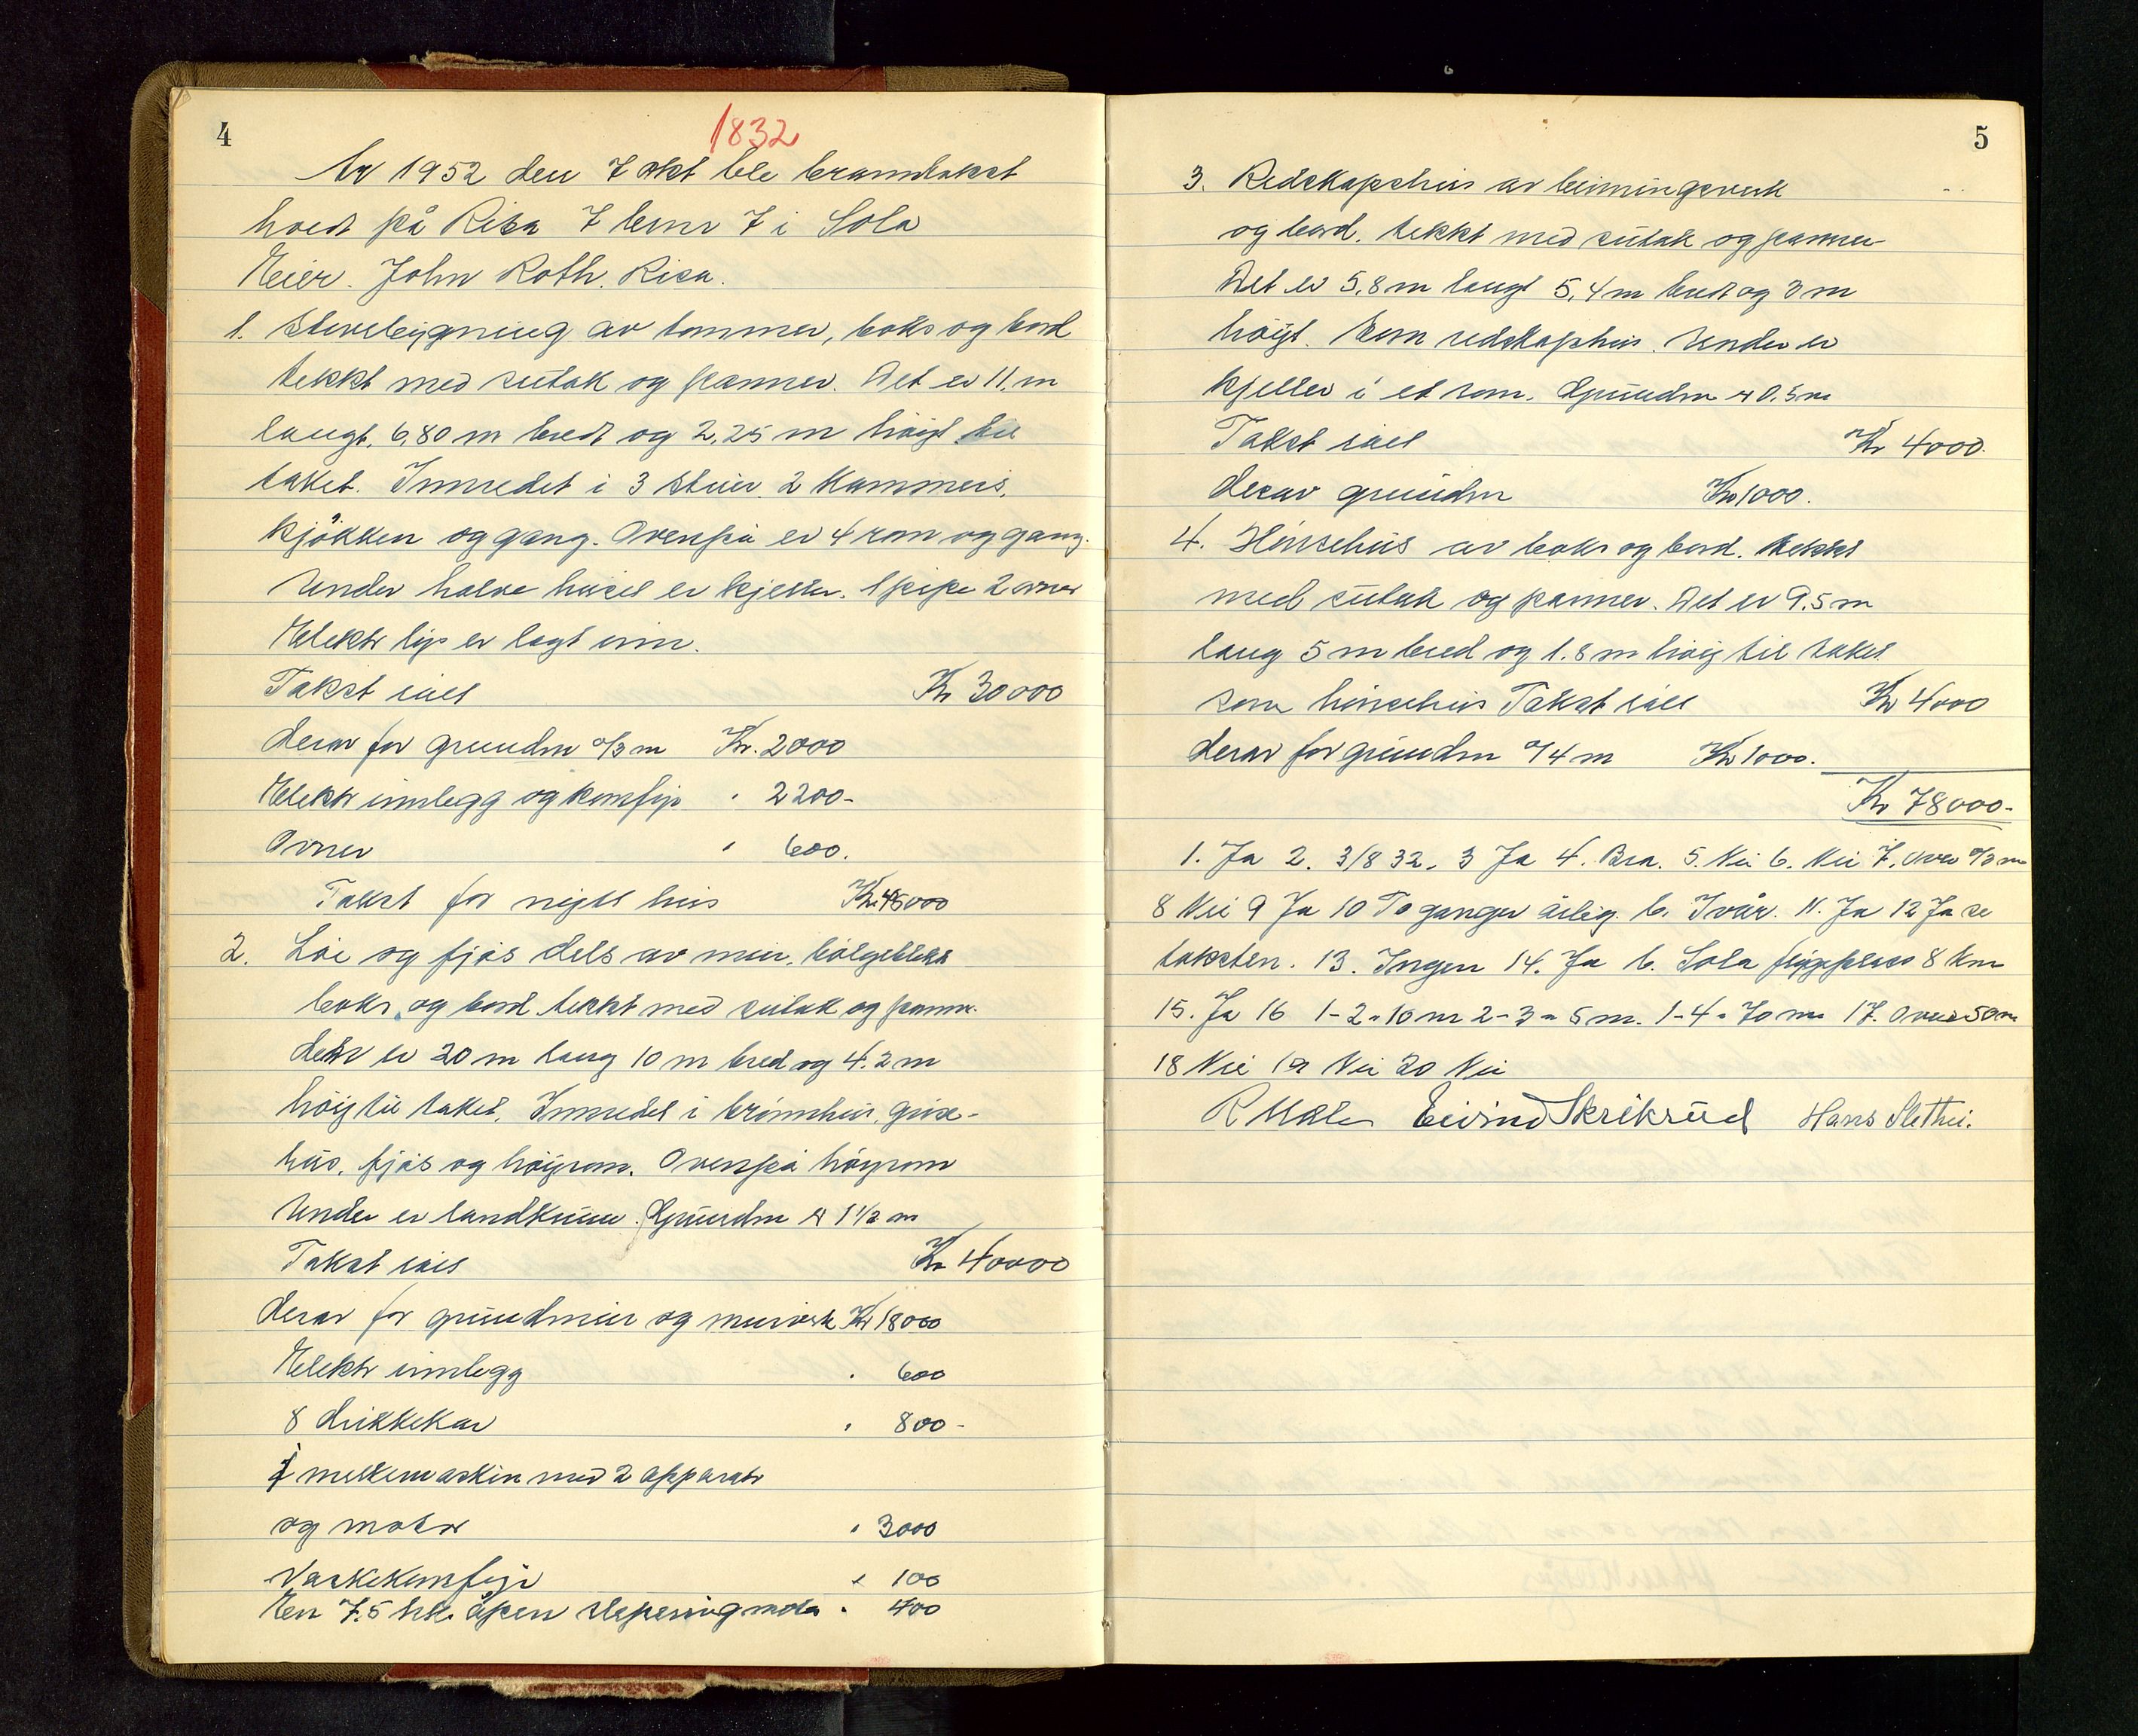 4
1832
År 1952 den 7 okt ble branntakst
holdt på Risa 7 brnr 7 i Sola
Eier. John Roth. Risa.
1. Stovebygning av tømmer, boks og bord
tekkt med sutak og panner. Det er 11, m
langt, 6,80 m bredt og 2,25 m høigt til
taket. Innredet i 3 stuer. 2 Kammers,
kjøkken og gang. Ovenpå er 4 rom og gang.
Under halve huset er kjeller. 1 pipe 2 ovner
Elektr lys er lagt inn.
Takst iält Kr 30000
derav for grundm 0/3 m Kr. 2000
Elektr innlegg og komfyr " 2200-
Ovner " 600.
Takst for nytt hus Kr 45000
2. Løe og fjøs dels av mur, bølgeblekk
boks, og bord tekkt med sutak og pann.
det er 20 m lang 10 m bred og 4.2 m
høig til taket. Innredet i brønnhus, grise-
hus, fjøs og høyrom. Ovenpå høyrom
Under er landkum. Grundm er 1 1/2 m
Takst iält Kr 40000
derav for grundmur og murverk Kr 18000
Elektr innlegg " 600
8 drikkekar " 800-
1 melkemaskin med 2 apparatr
og motor " 3000
Vaskekomfyr " 100
En 7.5 hk. åpen slepering motor " 400
5
3. Redskapshus av binningsverk
og bord. tekkt med sutak og panner
Det er 5,8 m langt 5,4 m bredt og 3 m
høigt. Som redskaphus. Under er
kjeller i et rom. Grundm er 0.5 m
Takst iält Kr 4000.
derav grundm Kr 1000.
4. Hønsehus av boks og bord. tekkt
med sutak og panner. Det er 9.5 m
lang 5 m bred og 1.8 m høig til taket
som hønsehus Takst iält Kr 4000
derav for grundm 0/4 m Kr 1000.
Kr 78000-
1. Ja 2. 3/8 32. 3 Ja 4. Bra. 5. Nei 6. Nei 7. over 0/3 m
8 Nei 9 Ja 10 To ganger årlig. b. I vår. 11. Ja 12 Ja se
taksten. 13. Ingen 14. Ja b. Sola flyplass 8 km
15. Ja 16 1-2 = 10 m 2-3 = 5 m. 1-4 = 70 m 17. Over 50 m
18 Nei 19 Nei 20 Nei
Eivind Skrikrud Hans Slethei.